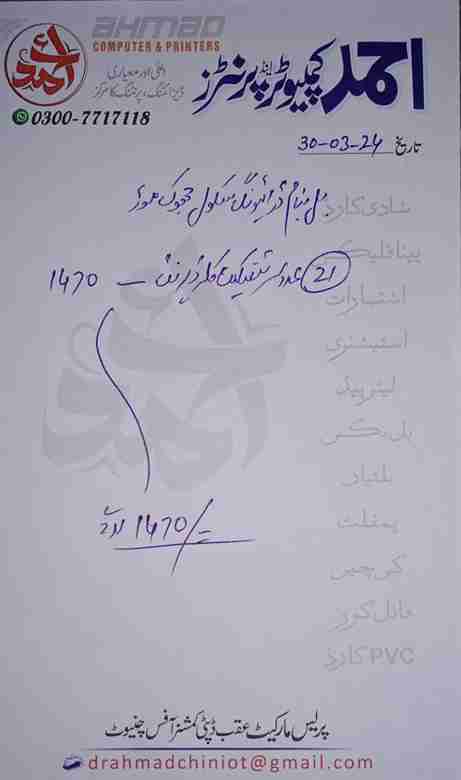 AHMAD
COMPUTER & PRINTERS
احمد کمپیوٹر اینڈ پرنٹرز
احمد
اعلیٰ اور معیاری
ڈیزائننگ، پرنٹنگ کا مرکز
0300-7717118
تاریخ 30-03-24
بل بنام ڈرائیونگ سکول جھوک موڑ
21 عدد سرٹیفکیٹ کلر پرنٹ — 1470
1470/= روپے
شادی کارڈ
پینافلیکس
اشتہارات
اسٹیشنری
لیٹر پیڈ
بل بکس
پمفلٹ
کی چین
فائل کور
PVC کارڈ
احمد
پریس مارکیٹ عقب ڈپٹی کمشنر آفس چنیوٹ
drahmadchiniot@gmail.com